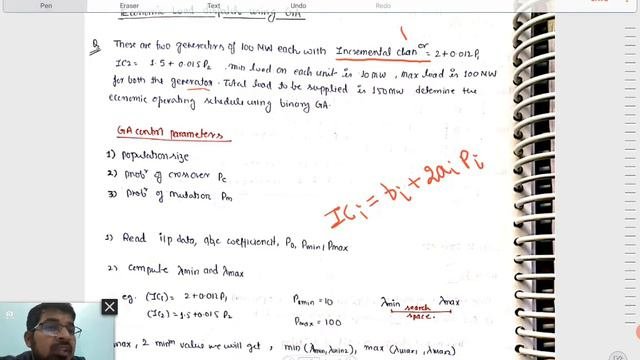 Pen
Eraser
Text
Undo
Redo
Economic Load dispatch using GIA
Q. These are two generators of 100 MW each with Incremental chan or = 2+0.012P1
IC2 = 1.5+0.015P2 . min load on each unit is 10 MW, max load is 100 MW
for both the generator. Total load to be supplied is 150 MW detemine the
economic operating schedule using binary GA.
GA control parameters
1) population size
2) prob^y of crossover Pc
3) prob^y of mutation Pm
ICi = bi + 2ai Pi
1) Read i/p data, abc coefficient, PD, Pmin, Pmax
2) compute λmin and λmax
eg. (IC1) = 2+0.012P1
Pmin = 10
λmin λmax
(IC2) = 1.5+0.015P2
Pmax = 100
search
space.
max, 2 min^m value we will get, min(λmin1, λmin2), max(λmax1, λmax2)